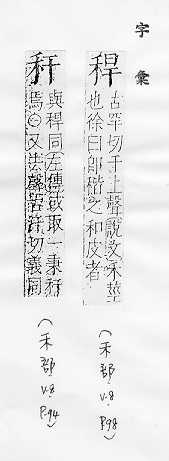 字彙
稈 古罕切干上聲說文禾莖也徐曰郎稭之和皮者
(禾部 V.8 P.98)
秆 與稈同左傳或取一秉秆焉○又去聲居許切義同
(禾部 V.8 P.94)